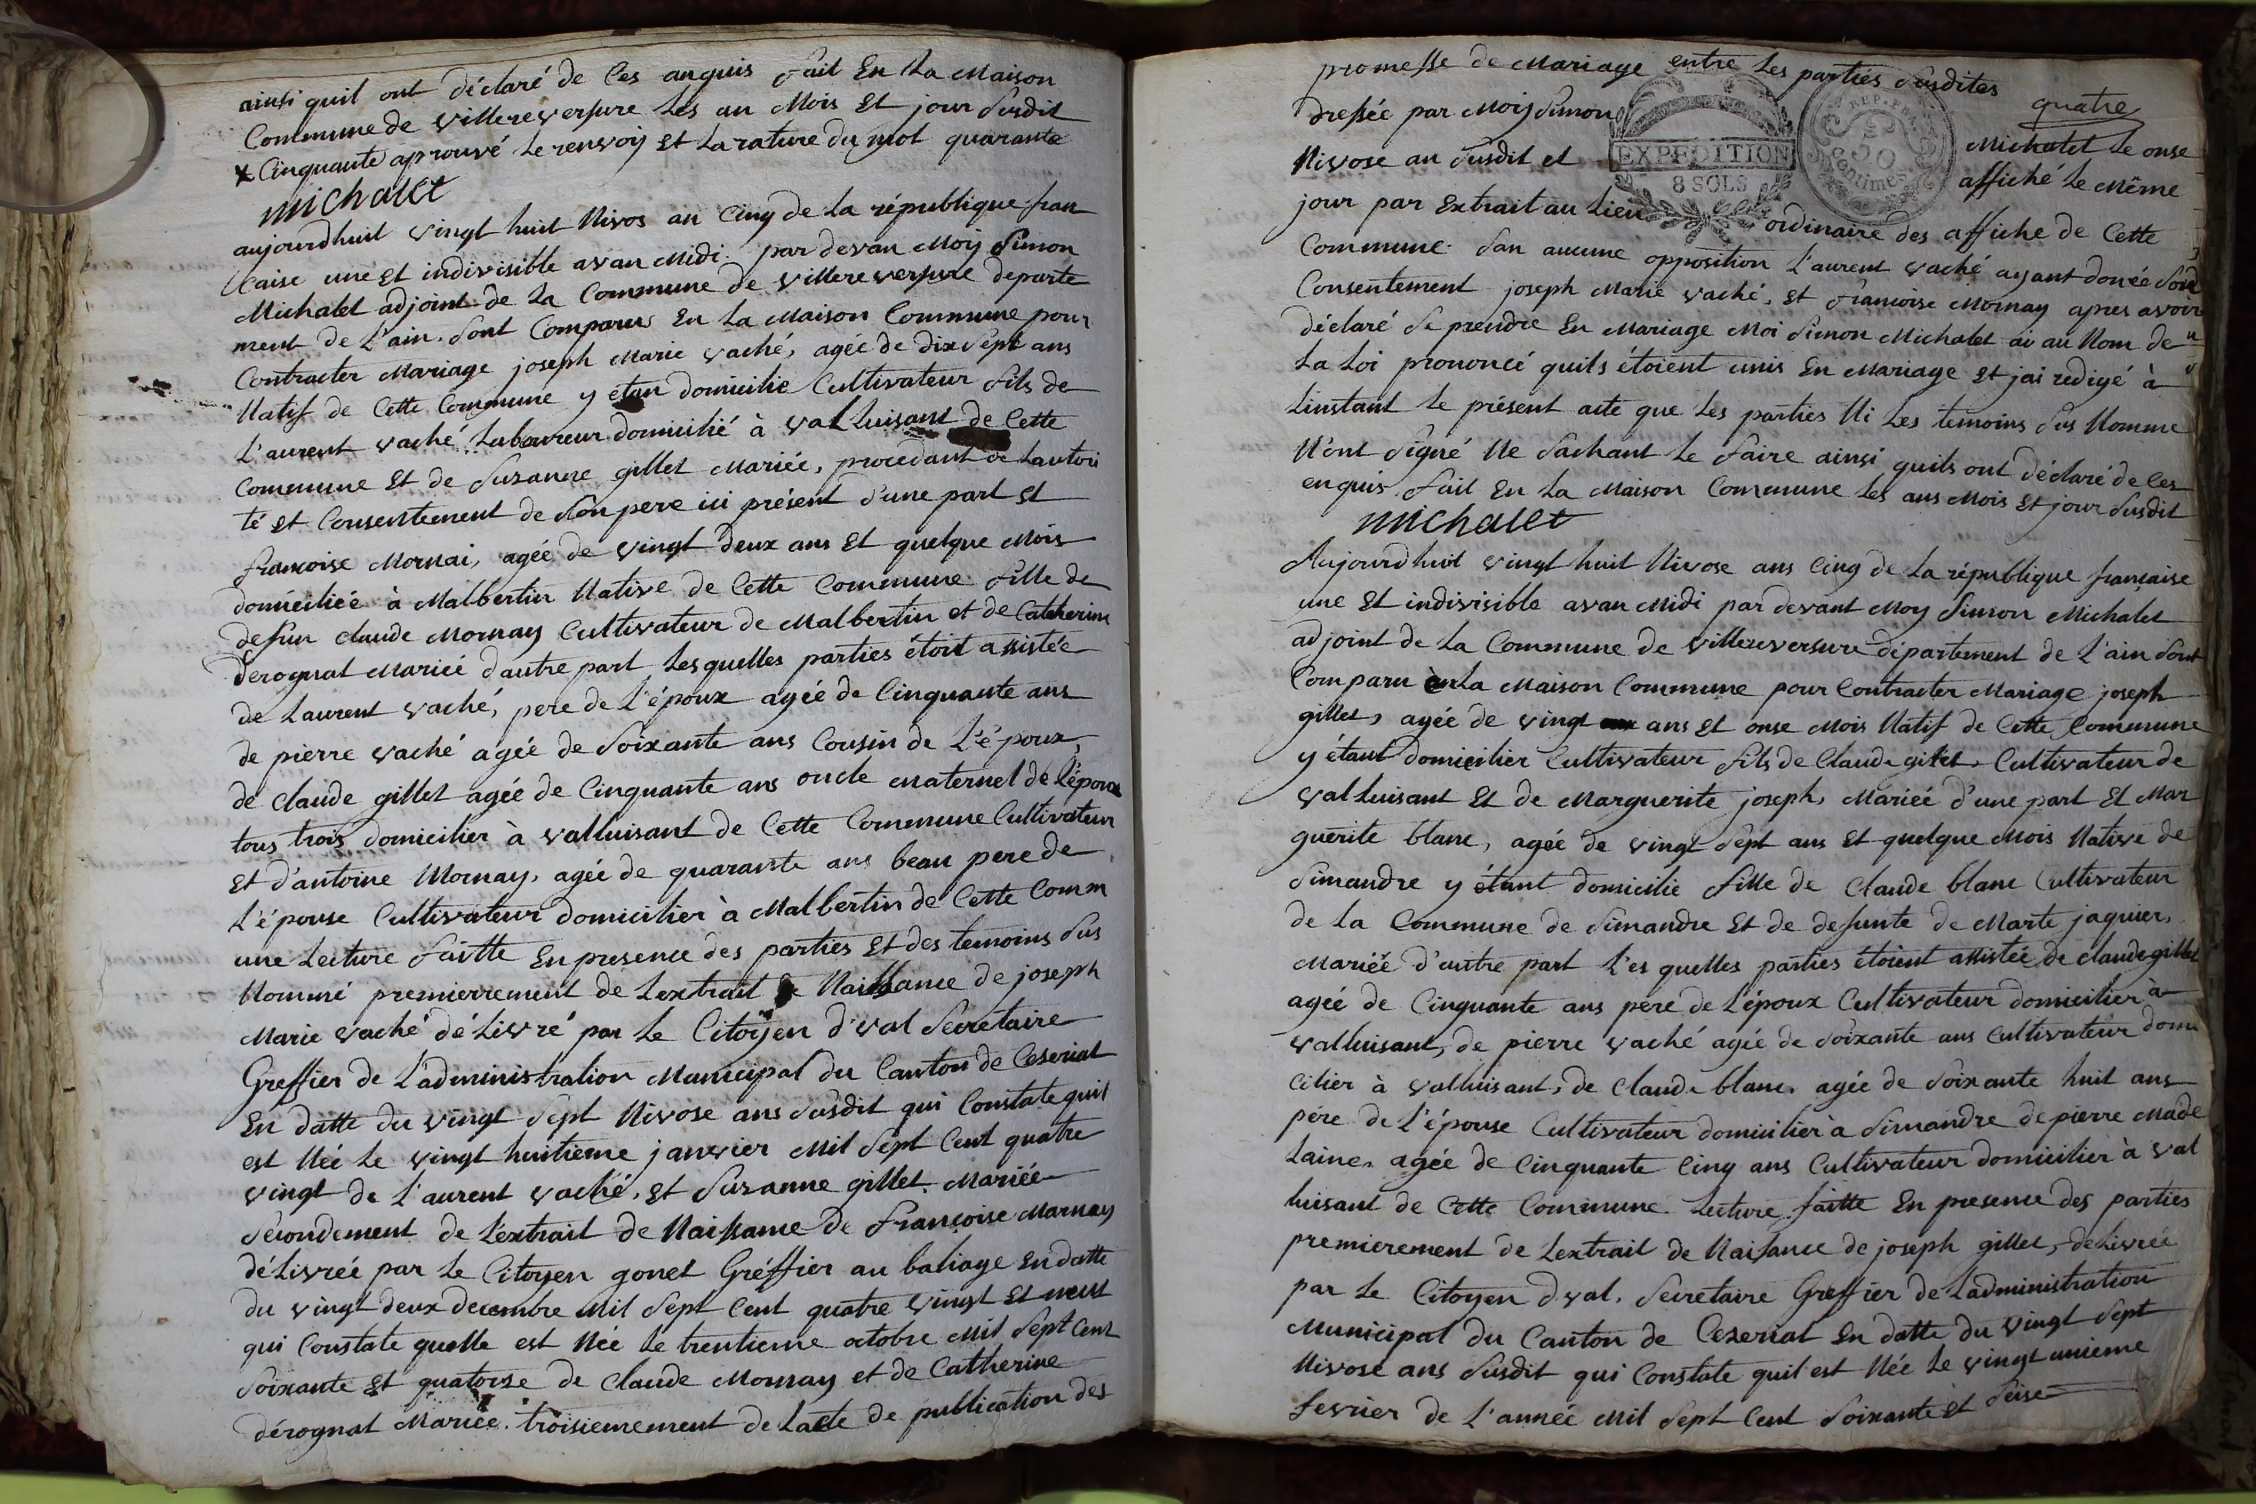 ainsi quil ont déclaré de Ces anquis fait En La Maison
Commune de villereversure Les an Mois Et jour Susdit
x Cinquante aprouvé Le renvoij Et La rature du mot quarante
michalet
aujourdhuit vingt huit Nivos an Cinq de La république fran
caise une Et indivisible avan Midi par devan Moij Simon
Michalet adjoint de La Commune de villereversure departe
ment de L'ain. Sont Comparus En La Maison Commune pour
Contracter Mariage joseph Marie vaché, agée de dix Sept ans
Natif de Cette Commune y étan domicilie Cultivateur fils de
L'aurent vaché Laboureur domicilié à valluisant de Cette
Commune Et de Suzanne gillet Mariée, procedant de Lautori
té Et Consentement de Son pere ici présent d'une part Et
françoise Mornai, agée de vingt deux ans Et quelque Mois
domiciliée à Malbertin Native de Cette Commune fille de
defun claude Mornay Cultivateur de Malbertin et de Catherine
derognat Mariée dautre part Lesquelles parties étoit assistée
de Laurent vaché, pere de L'époux agée de Cinquante ans
de pierre vaché agée de Soixante ans Cousin de L'époux,
de Claude gillet agée de Cinquante ans oncle maternel de L'époux
tous trois domicilier à valluisant de Cette Commune Cultivateur
Et d'antoine Mornay, agée de quarante ans beau pere de
L'épouse Cultivateur domicilier à Malbertin de Cette Comm
une Lecture faitte En presence des parties Et des temoins Sus
Nommé premierrement de Lextrait de Naissance de joseph
Marie vaché délivré par Le Citoÿen d'val Secretaire
Greffier de L'administration Municipal du Canton de Ceseriat
En datte du vingt Sept Nivose ans Susdit qui Constate quil
est Née Le vingt huitieme janvier Mil Sept Cent quatre
vingt de L'aurent vaché, Et Suzanne gillet Mariée
Secondement de Lextrait de Naissance de Françoise Marnay
délivrée par Le Citoyen gonet Gréffier au baliage En datte
du vingt deux decembre Mil Sept Cent quatre vingt Et neuf
qui Constate quelle est Née Le trentieme octobre Mil Sept Cent
Soixante Et quatorze de Claude Mornay et de Catherine
dérognat Mariée. troisiemement de Lacte de publication des
promesse de Mariage entre Les parties Susdites
quatre
dressée par Moij Simon Michalet Le onse
EXPEDITION
8 SOLS
REP. FRA.
50
Centimes
Nivose an Susdit et affiché Le Même
jour par Extrait au Lieu ordinaire des affiche de Cette
Commune San aucune opposition L'aurent vaché ayant donée Son
Consentement joseph Marie vaché, Et françoise Mornay apres avoir
déclaré Se prendre En Mariage Moi Simon Michalet ai au Nom de
La Loi prononcé quils étoient unis En Mariage Et jai redigé à
Linstant Le présent acte que Les parties Ni Les temoins Sus Nomme
N'ont Signé Ne Sachant Le faire ainsi quils ont déclaré de Ces
enquis fait En La Maison Commune Les ans Mois Et jour Susdit
michalet
Aujourdhuit vingt huit Nivose ans Cinq de La république française
une Et indivisible avan Midi par devant Moy Simon Michalet
adjoint de La Commune de villereversure département de L'ain Sont
Comparu En La Maison Commune pour Contracter Mariage joseph
gillet, agée de vingt ans Et onse Mois Natif de Cette Commune
y étant domicilier Cultivateur fils de Claude gillet, Cultivateur de
valluisant Et de Marguerite joseph, Mariée d'une part Et Mar
guérite blanc, agée de vingt Sept ans Et quelque Mois Native de
Simandre y étant domicilie fille de Claude blanc Cultivateur
de La Commune de Simandre Et de defunte de Marte jaquier,
Mariée d'autre part L'es quelles parties étoient assistée de claude gillet
agée de Cinquante ans pere de L'époux Cultivateur domicilier à
valluisant, de pierre vaché agée de Soixante ans Cultivateur domi
cilier à valluisant, de Claude blanc, agée de Soixante huit ans
pére de L'épouse Cultivateur domicilier à Simandre de pierre Made
Laine, agée de Cinquante Cinq ans Cultivateur domicilier à val
luisant de Cette Commune. Lecture faitte En presence des parties
premierement de Lextrait de Naisance de joseph gillet, délivrée
par Le Citoyen dval, Secretaire Greffier de L'administration
Municipal du Canton de Cezeriat En datte du vingt Sept
Nivose ans Susdit qui Constate quil est Née Le vingt unieme
fevrier de L'année Mil Sept Cent Soixante Et Seise